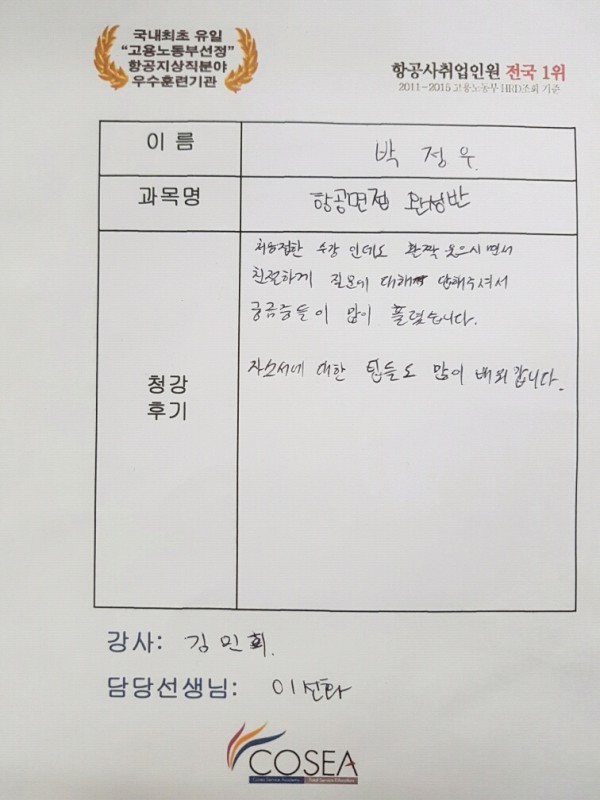 국내최초 유일
“고용노동부선정”
항공지상직분야
우수훈련기관
항공사취업인원 전국 1위
2011~2015 고용노동부 HRD조회 기준
이 름
박 정 우.
과목명
항공면접 완성반
청강
후기
처음접한 수강 인데도 활짝 웃으시면서
친절하게 질문에 대해 답해주셔서
궁금증들이 많이 풀렸습니다.
자소서에 대한 팁들도 많이 배워갑니다.
강사: 김민희.
담당선생님: 이선화
COSEA